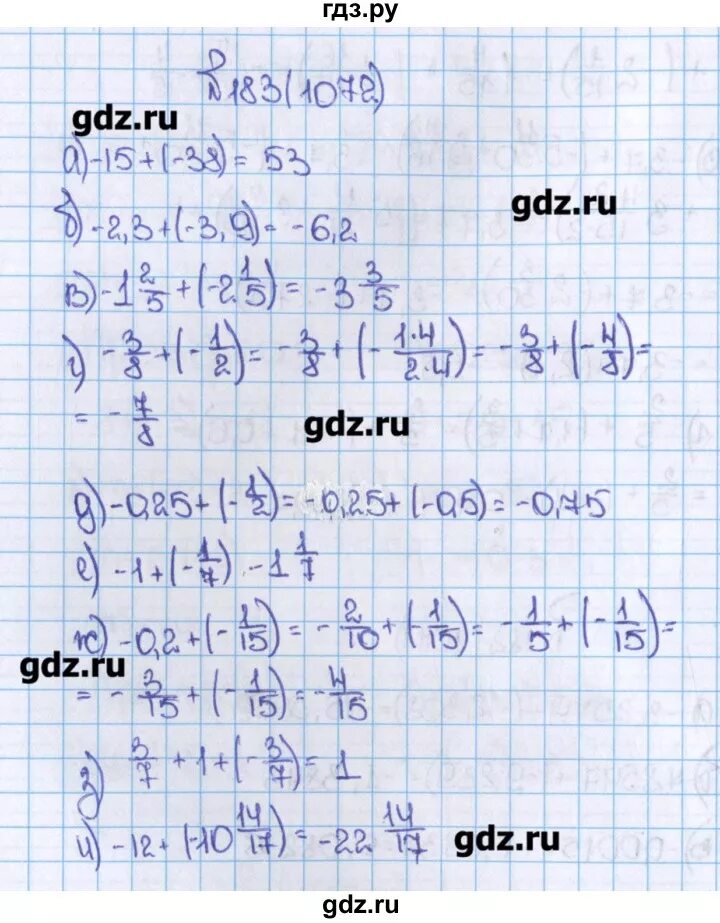 гдз.ру
№183(1072)
gdz.ru
а) -15 + (-38) = 53
gdz.ru
б) -2,3 + (-3,9) = -6,2
в) -1 2/5 + (-2 1/5) = -3 3/5
г) -3/8 + (-1/2) = -3/8 + (-1·4/2·4) = -3/8 + (-4/8) =
= -7/8
gdz.ru
д) -0,25 + (-1/2) = 0,25 + (-0,5) = -0,75
е) -1 + (-1/7) -1 1/7
ж) -0,2 + (-1/15) = -2/10 + (-1/15) = -1/5 + (-1/15) =
gdz.ru
= -3/15 + (-1/15) = -4/15
з) 3/7 + 1 + (-3/7) = 1
и) -12 + (-10 14/17) = -22 14/17
gdz.ru
гдз.ру